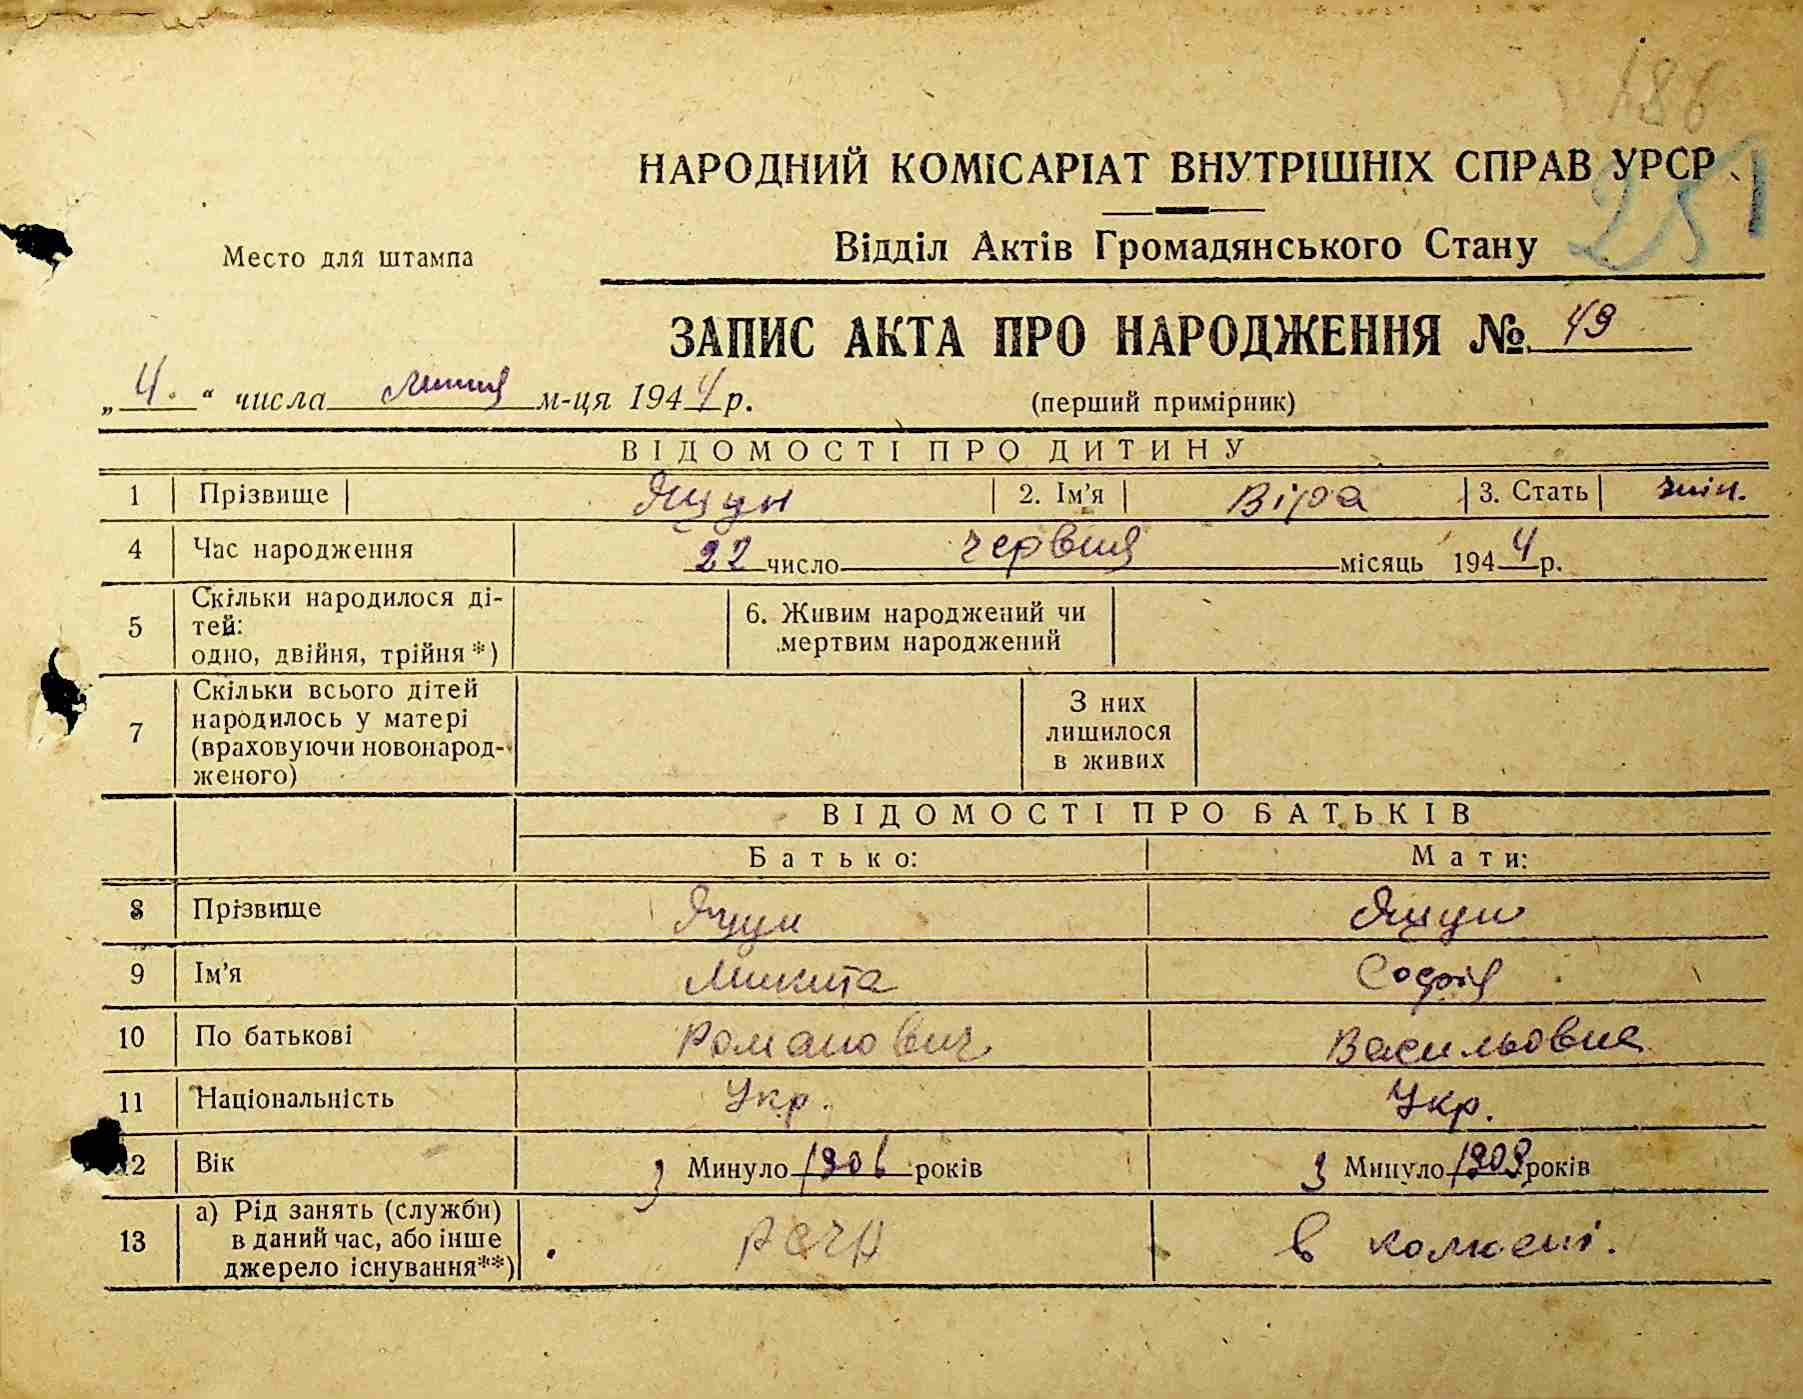 186
НАРОДНИЙ КОМІСАРІАТ ВНУТРІШНІХ СПРАВ УРСР
251
Место для штампа
Відділ Актів Громадянського Стану
ЗАПИС АКТА ПРО НАРОДЖЕННЯ № 49
„ 4. “ числа липня м-ця 1944 р.
(перший примірник)
ВІДОМОСТІ ПРО ДИТИНУ
1 Прізвище Ящун 2. Ім'я Віра 3. Стать жін.
4 Час народження 22 число червня місяць 1944 р.
5 Скільки народилося ді-
тей:
одно, двійня, трійня *)
6. Живим народжений чи
мертвим народжений
7 Скільки всього дітей
народилось у матері
(враховуючи новонарод-
женого)
З них
лишилося
в живих
ВІДОМОСТІ ПРО БАТЬКІВ
Батько: Мати:
8 Прізвище Ящун Ящун
9 Ім'я Микита Софія
10 По батькові Романович Васильовна
11 Національність Укр. Укр.
12 Вік З Минуло 1906 років З Минуло 1909 років
13 а) Рід занять (служби)
в даний час, або інше
джерело існування**)
РСЧА в колгоспі.